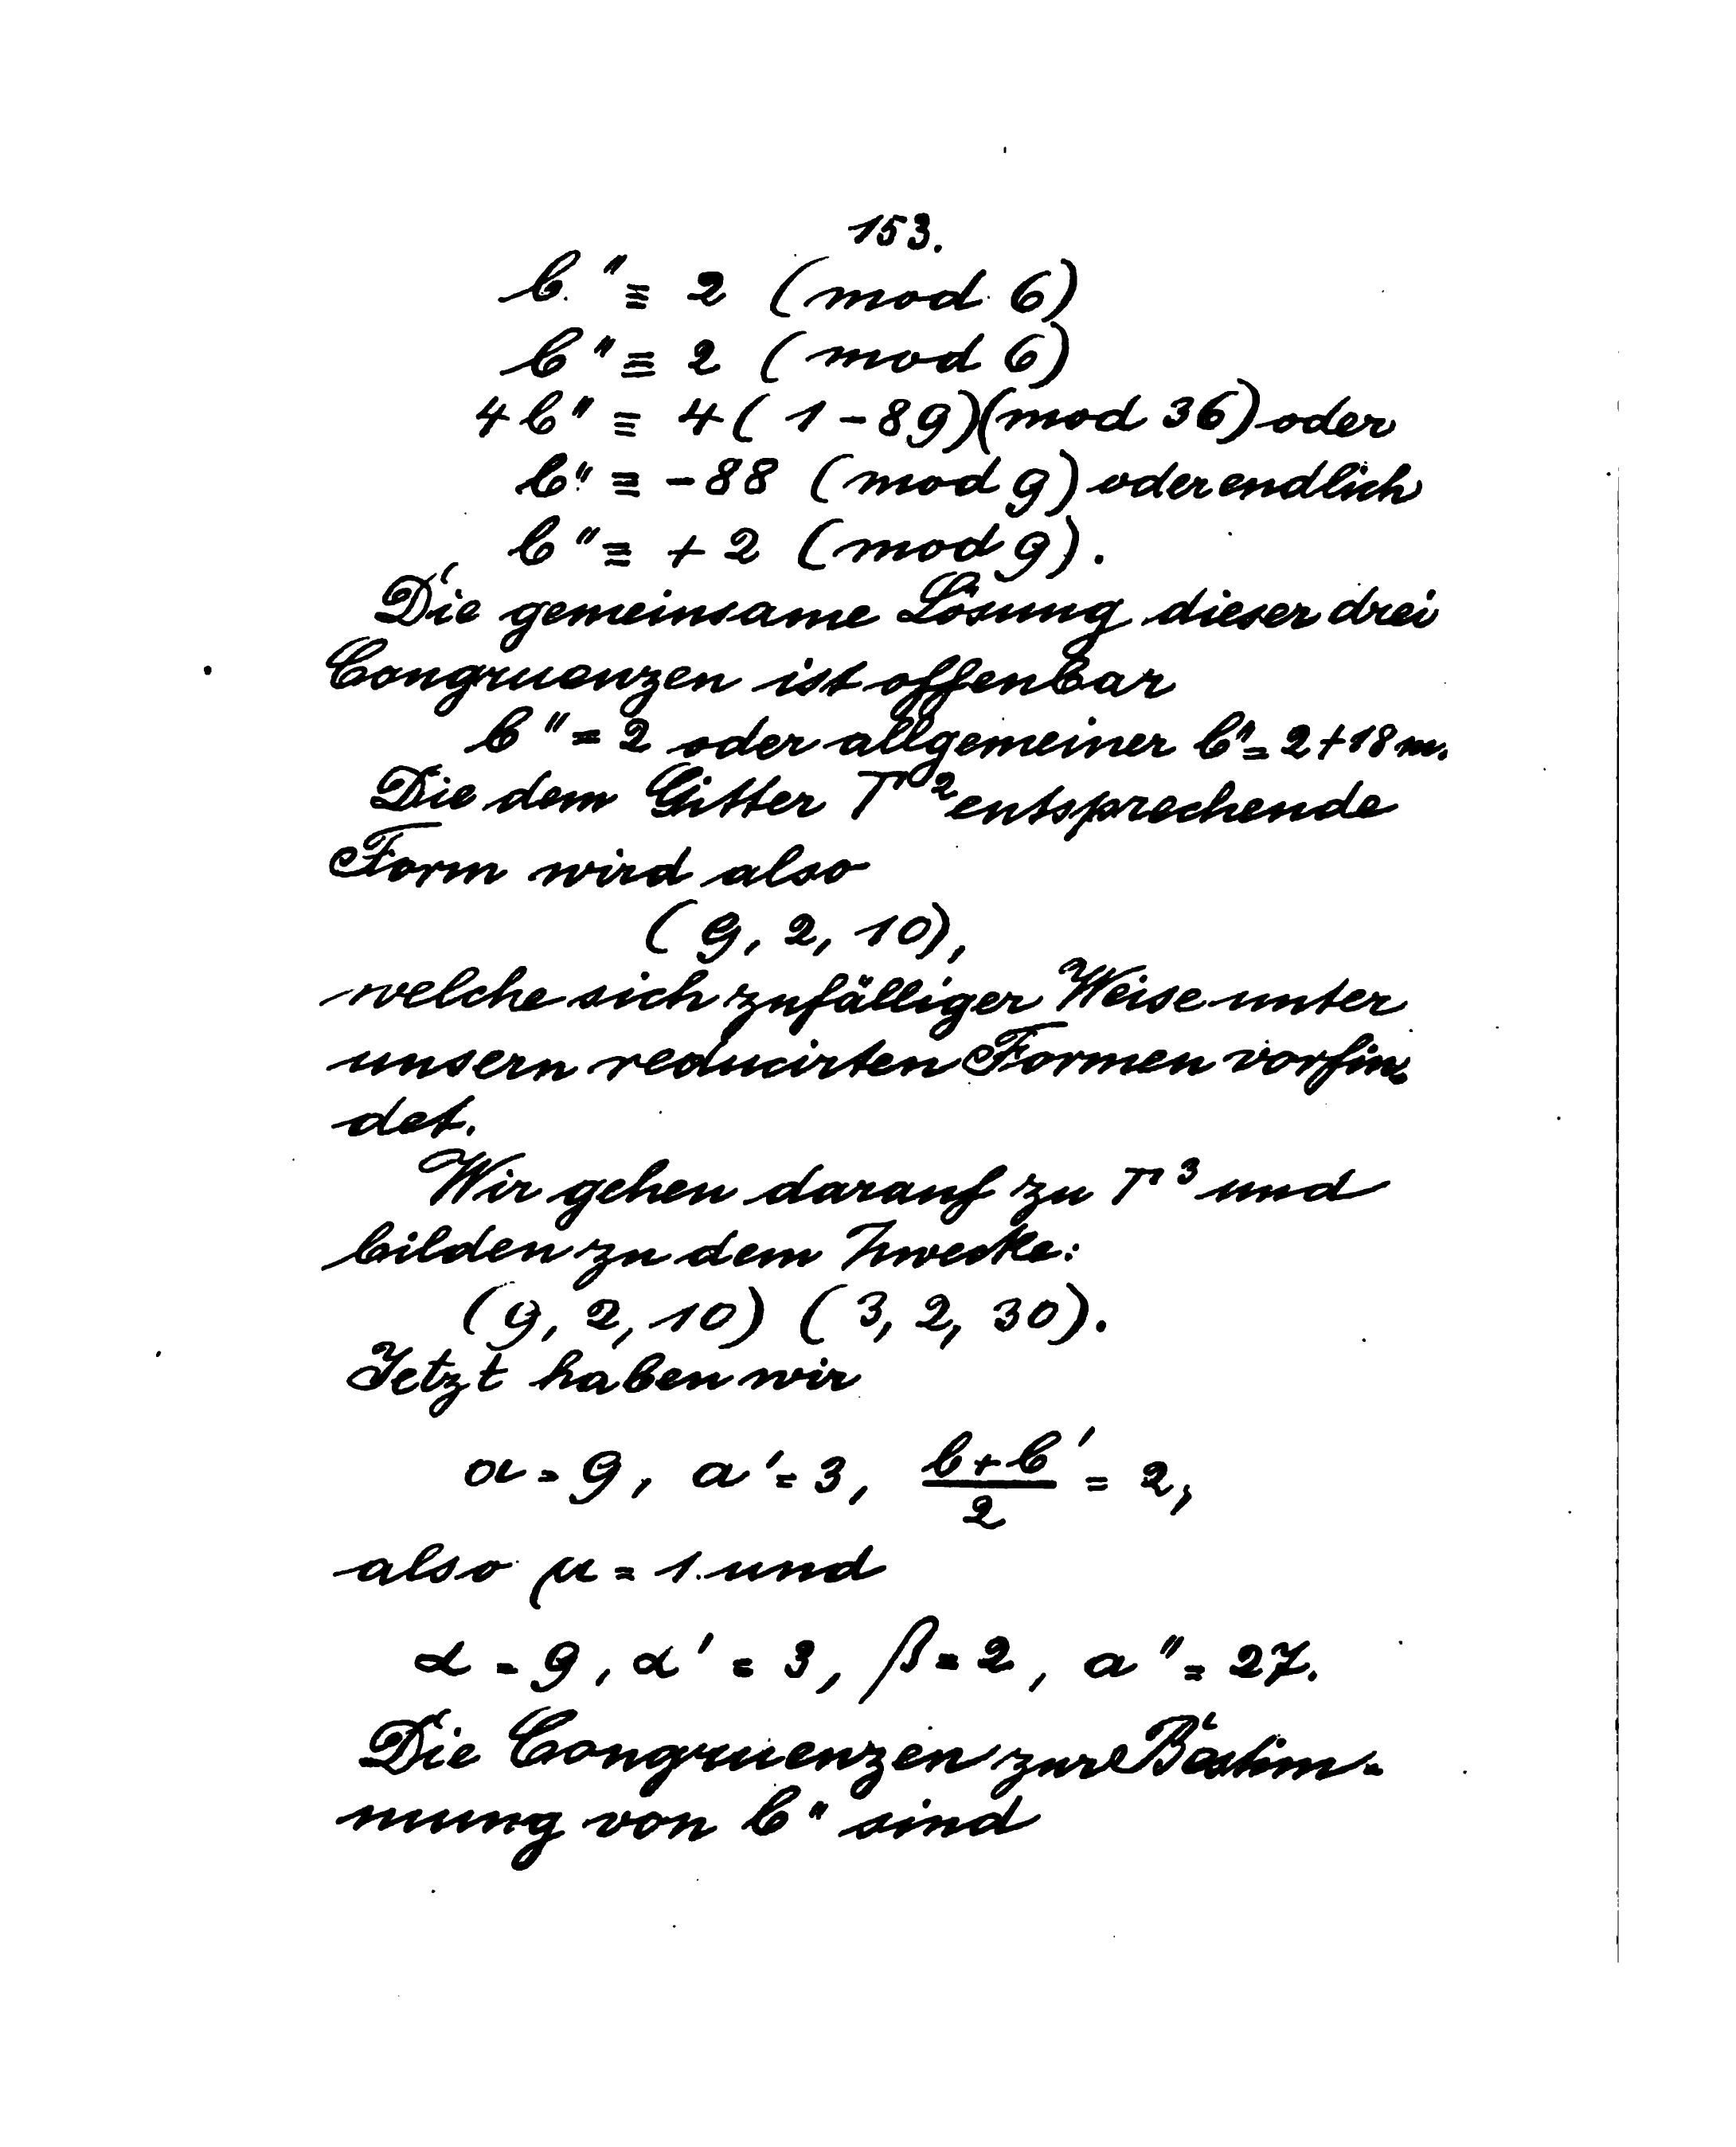 153.
b″ ≡ 2 (mod 6)
b″ ≡ 2 (mod 6)
4b″ ≡ 4(1-89)(mod 36) oder
b″ ≡ -88 (mod 9) oder endlich
b″ ≡ +2 (mod 9).
Die gemeinsame Lösung dieser drei
Congruenzen ist offenbar
b″ = 2 oder allgemeiner b″ = 2+18m.
Die dem Gitter T² entsprechende
Form wird also
(9, 2, 10),
welche sich zufälliger Weise unter
unsern reducirten Formen vorfin-
det.
Wir gehen darauf zu T³ und
bilden zu dem Zwecke:
(9, 2, 10) (3, 2, 30).
Jetzt haben wir
a = 9, a′ = 3, (b+b′)/2 = 2,
also μ = 1. und
α = 9, α′ = 3, β = 2, a″ = 27.
Die Congruenzen zur Bestim-
mung von b″ sind